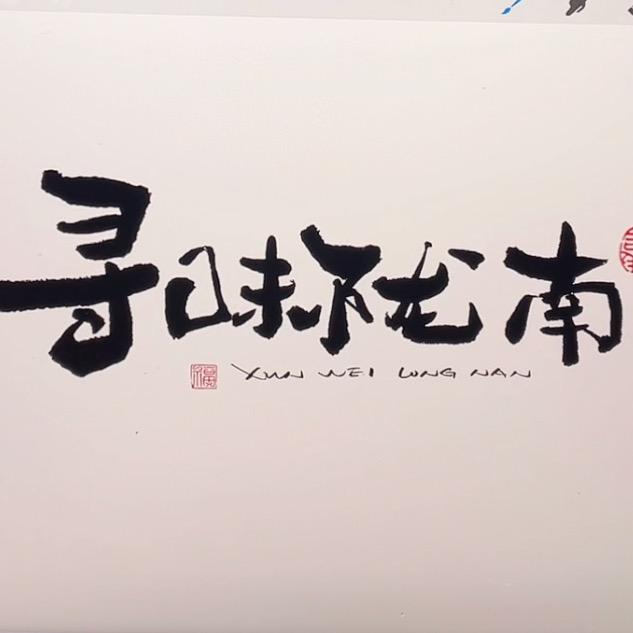 寻味陇南
XUN WEI LONG NAN